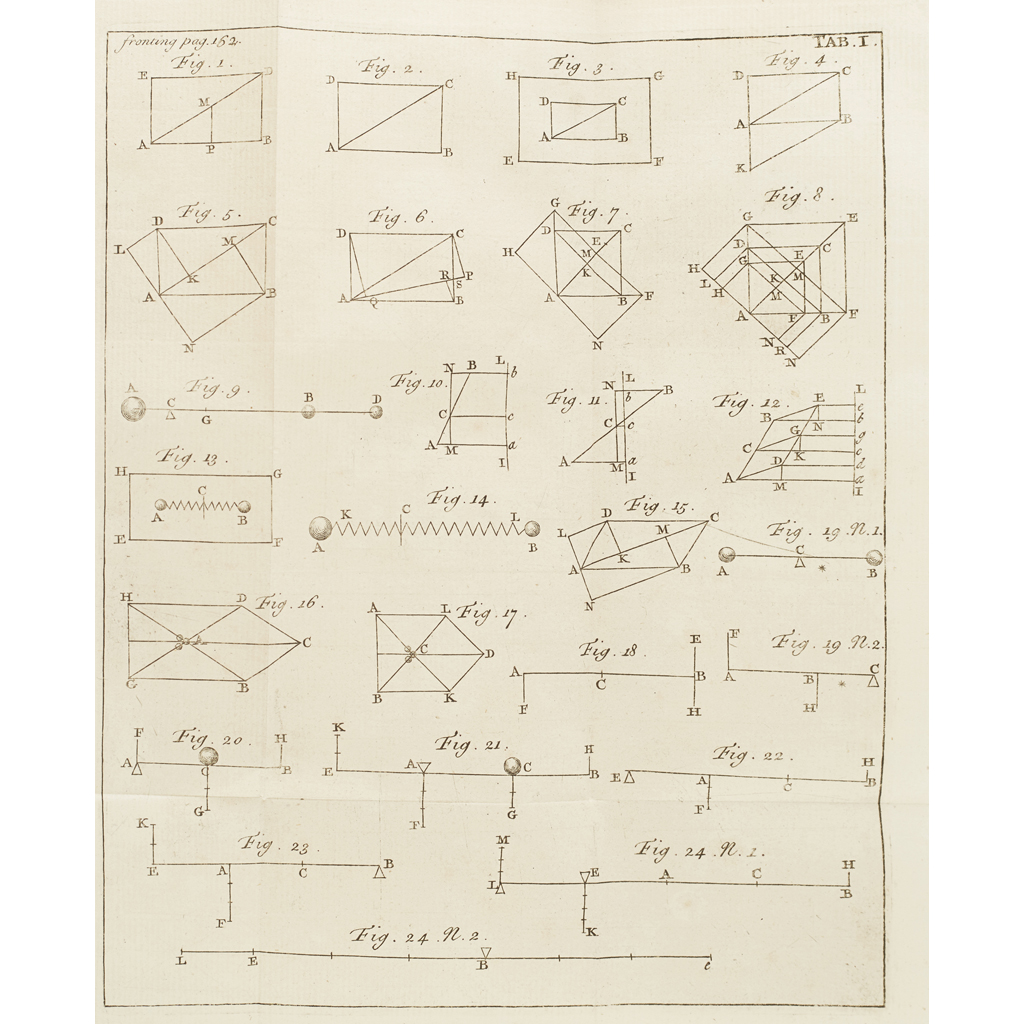 fronting pag. 152.
TAB. I.
Fig. 1.
E D
M
A P B
Fig. 2.
D C
A B
Fig. 3.
H G
D C
A B
E F
Fig. 4.
D C
A B
K
Fig. 5.
D C
L M
K
A B
N
Fig. 6
D C
R P
S
A Q B
Fig. 7
G
D C
E
H M
K
A B F
N
Fig. 8.
G E
D C
G E
H K M
L
H M
A F B F
N R
N
Fig. 9
A C G B D
Fig. 10.
N B L b
C c
A M a
I
Fig. 11
L
N b B
C c
A M a
I
Fig. 12
L
E e
B N b
G g
C K c
D d
A M a
I
Fig. 13.
H G
C
A B
E F
Fig. 14.
K C L
A B
Fig. 15.
D C
L M
K
A B
N
Fig. 19 N. 1.
C
A B
Fig. 16
H D
C
G B
Fig. 17.
A L
C D
B K
Fig. 18
E
A C B
F H
Fig. 19 N. 2.
F
A B C
H
Fig. 20
F H
A C B
G
Fig. 21.
K H
E A C B
F G
Fig. 22.
H
E A C B
F
Fig. 23
K
E A C B
F
Fig. 24. N. 1.
M H
L E A C B
K
Fig. 24 N. 2.
L E B